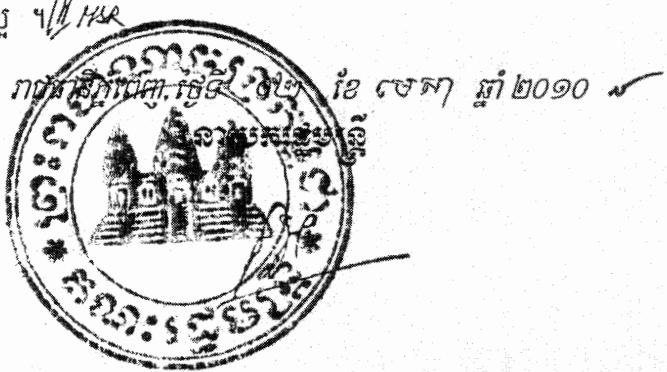 ។ HSR
រាជធានីភ្នំពេញ, ថ្ងៃទី ០២ ខែ មេសា ឆ្នាំ ២០១០
នាយករដ្ឋមន្ត្រី
ព្រះរាជាណាចក្រកម្ពុជា
* គណៈរដ្ឋមន្ត្រី *